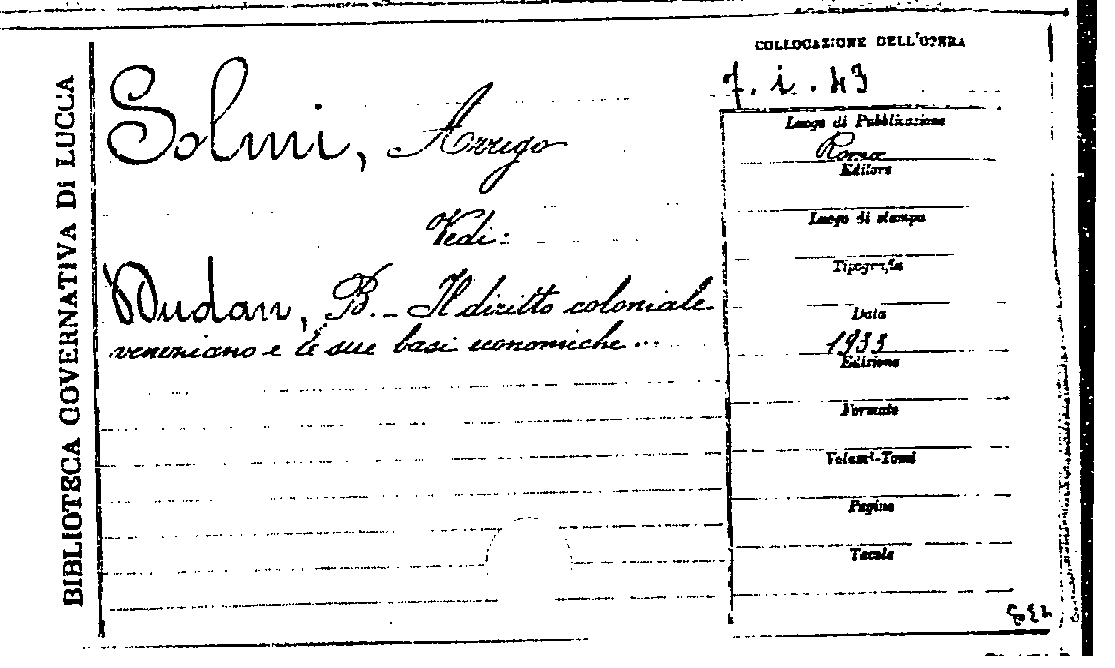 BIBLIOTECA GOVERNATIVA DI LUCCA
Solmi, Arrigo
Vedi:
Dudan, B. - Il diritto coloniale
veneziano e le sue basi economiche ...
COLLOCAZIONE DELL'OPERA
7. i. 43
Luogo di Pubblicazione
Roma
Editore
Luogo di stampa
Tipografia
Data
1933
Edizione
Formato
Volumi-Tomi
Pagine
Tavole